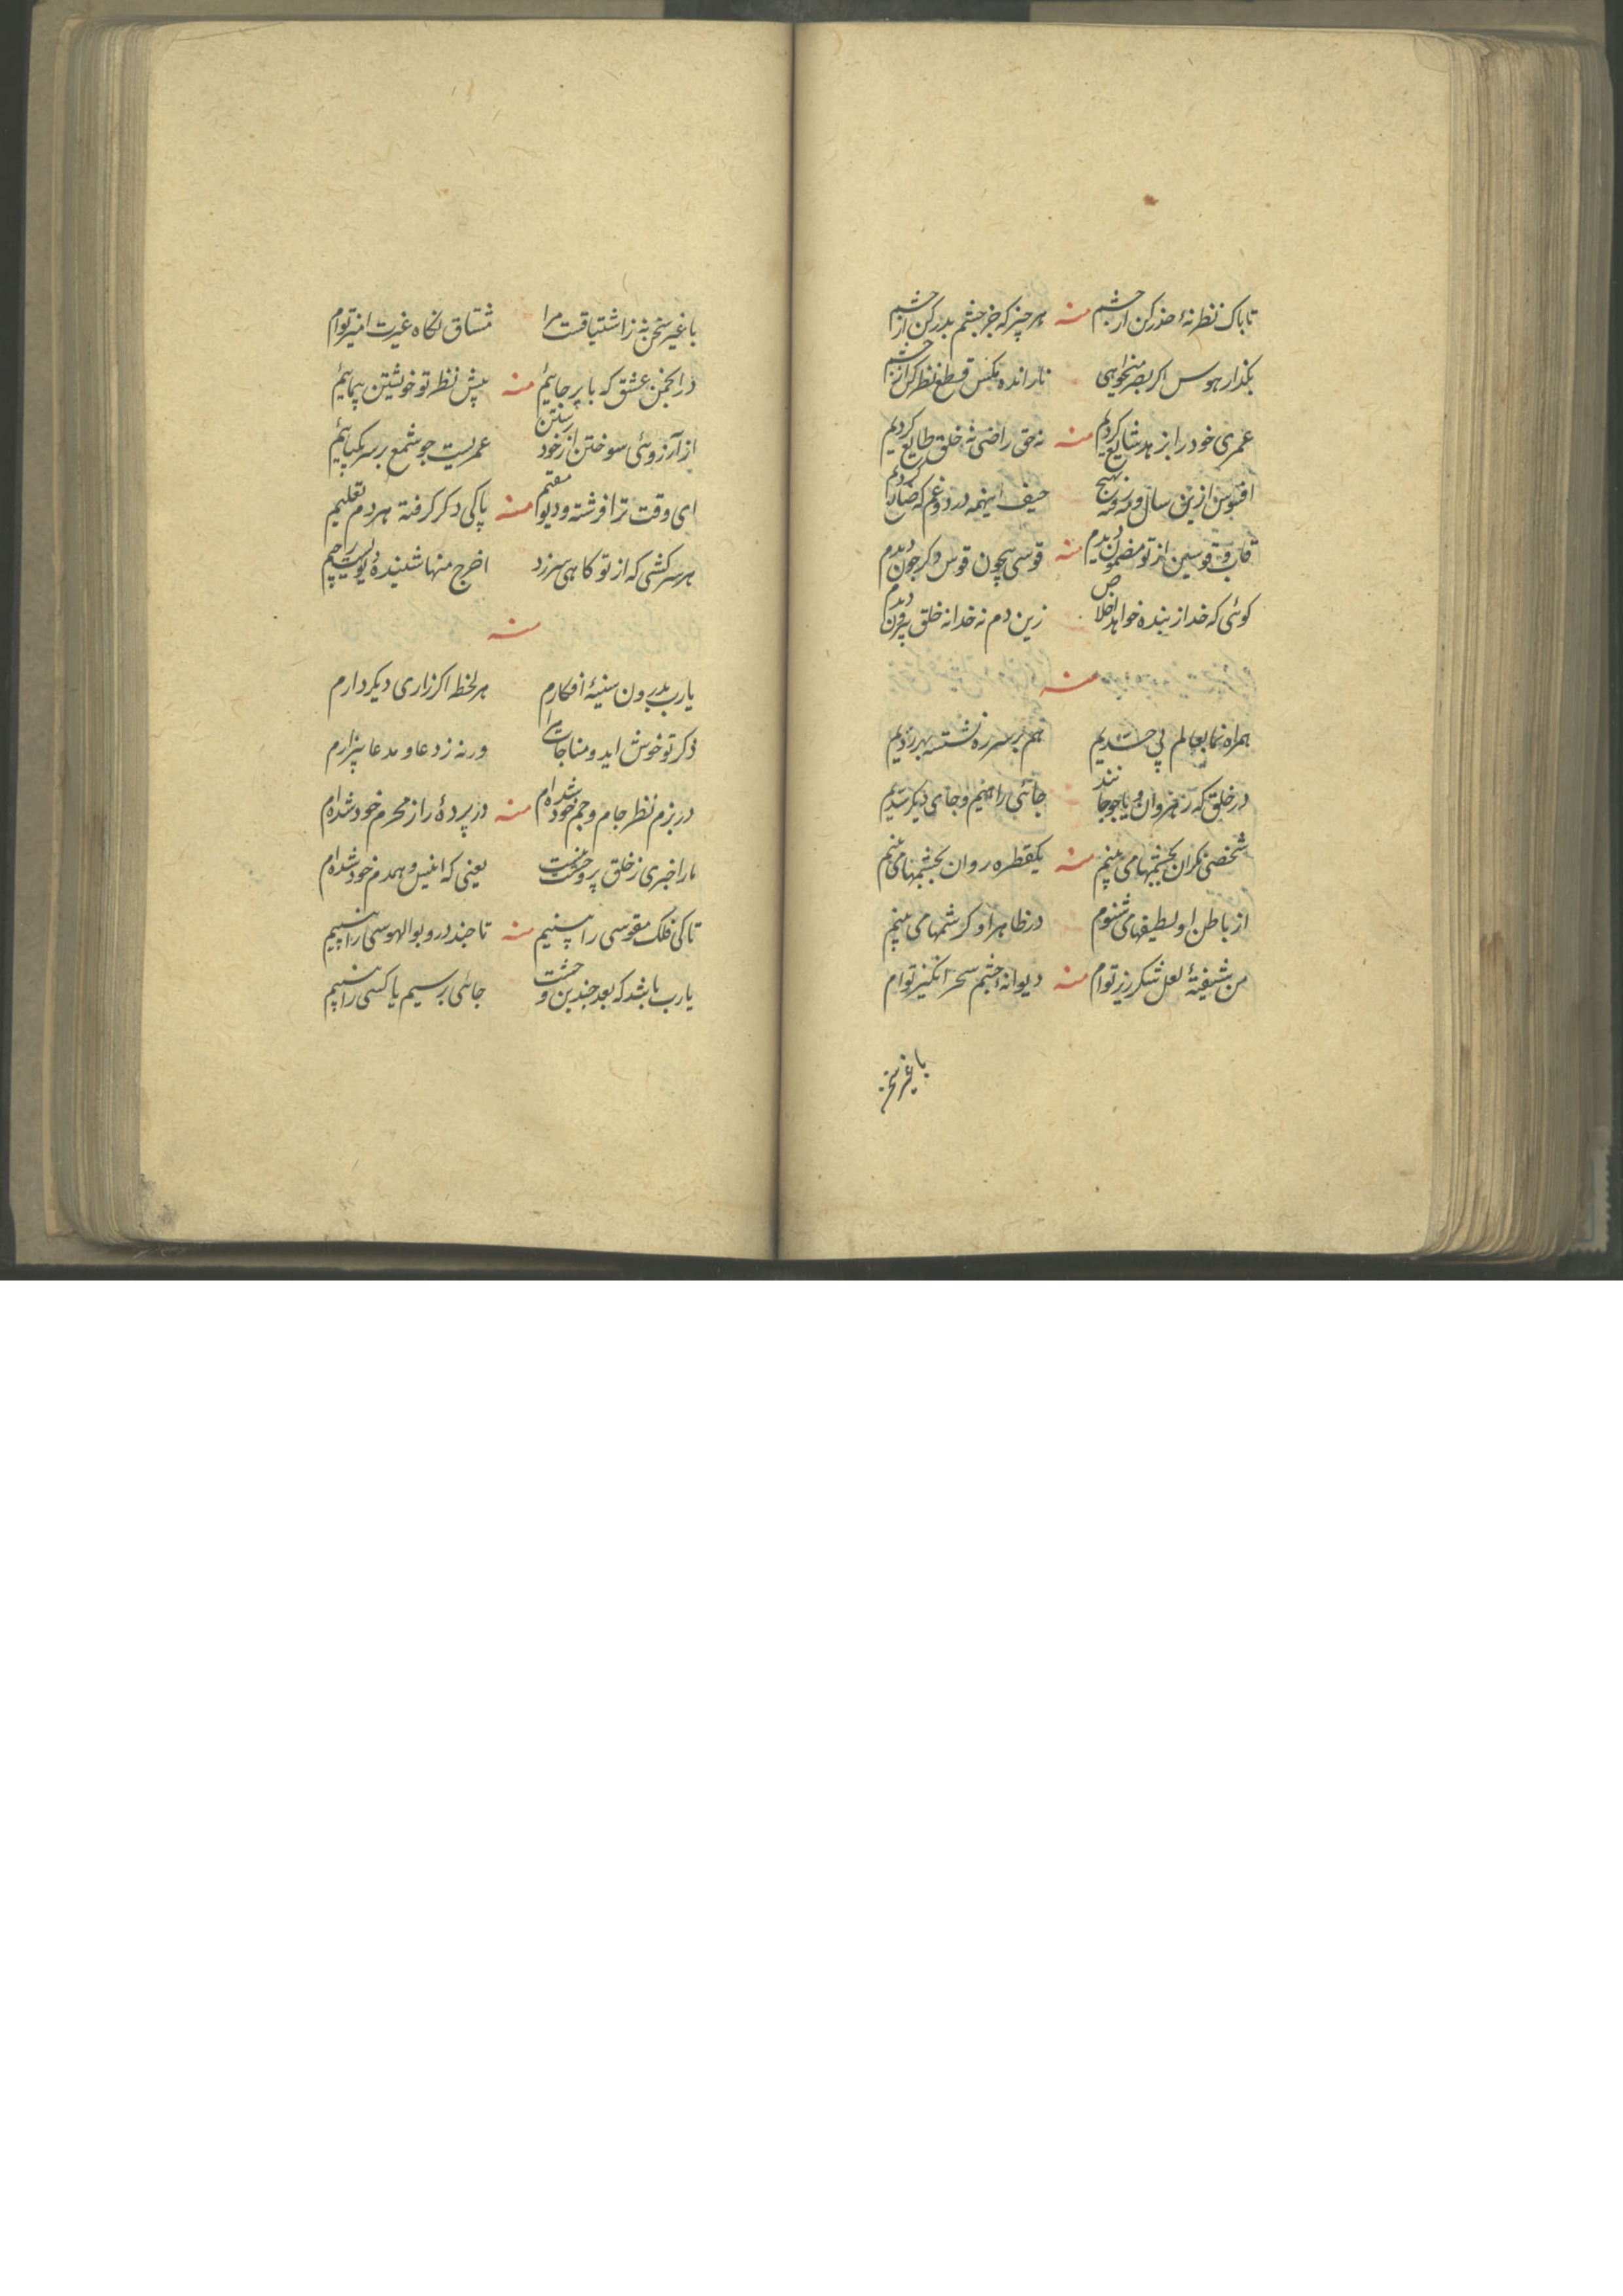 تا پاک نظر نهٔ حذر کن از چشم منه هر چیز که جز چشم بدر کن از چشم
بکذار هوس اکر بصر میخواهی تار انده مکس قطع نظر کن از چشم
عمری خود را بزهد شایع کردیم منه نه حق راضی نه خلق طایع کردیم
افسوس ازین سال و مه و روز حیف اینهمه درد و غم که ضایع کردیم
قاب قوسین از تو مضمون دیدم منه قوسی همچون قوس دکر چون دیدم
کوئی که خدا ز بنده خواهد اخلاص زین دم نه خدا نه خلق بیرون دیدم
منه
همراه نما بعالم پی شدیم هم بر سر ره نشسته رهزن دیدیم
در خلق که رهروان جا جائی راهیم و جای دیکر شدیم
شخصی نکران بچشمها می بینم منه یکقطره روان بچشمها می بینم
از باطن او لطیفها می شنوم در ظاهر او کرشمها می بینم
من شیفتهٔ لعل شکر ریز توام منه دیوانه چشم سحر انکیز توام
با غیر سخن
با غیر سخن نه ز اشتیاقست مرا مشتاق نکاه غیرت امیز توام
در انجمن عشق که پا بر جائیم منه پیش نظر تو خویشتن پیمائیم
از آرزوئی سوختن از خود رفتن عمریست چو شمع بر سر یکپائیم
ای وقت ترا فرشته و دیو مقیم منه پاکی دکر کرفته هر دم تعلیم
هر سرکشی که از تو کاهی سرزد اخرج منها شنیده دیو رجیم
منه
یارب بدرون سینهٔ افکارم هر لحظ اکر زاری دیکر دارم
ذکر تو خوش اید و مناجات مرا ور نه ز دعا و مدعا بیزارم
در بزم نظر جام و جم خود شده ام منه در پردهٔ راز محرم خود شده ام
مارا خبری ز خلق پر وحشت نیست یعنی که انیس و همدم خود شده ام
تا کی فلک مقوسی را بینیم منه تا چند درو بوالهوسی را بینیم
یارب باشد که بعد چندین وحشت جائی برسیم یا کسی را بینیم